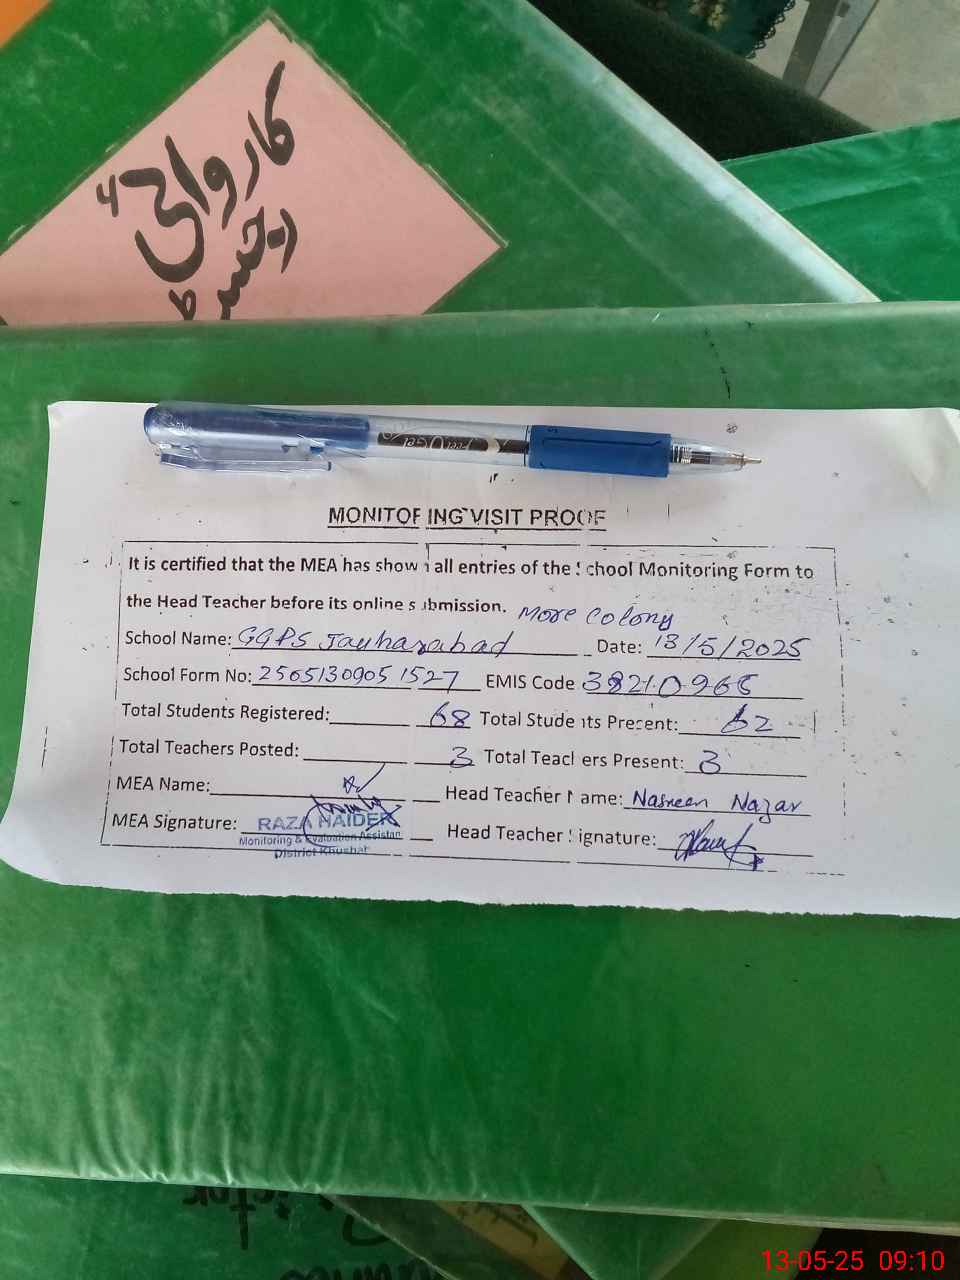 کاروائی
رجسٹر
MONITORING VISIT PROOF
It is certified that the MEA has shown all entries of the School Monitoring Form to
the Head Teacher before its online submission.
More Colony
School Name: GGPS Jauharabad Date: 13/5/2025
School Form No: 25051309051527 EMIS Code 38210966
Total Students Registered: 68 Total Students Present: 62
Total Teachers Posted: 3 Total Teachers Present: 3
MEA Name: Head Teacher Name: Nasreen Nazar
MEA Signature: Head Teacher Signature:
RAZA HAIDER
Monitoring & Evaluation Assistan
District Khushab
13-05-25 09:10